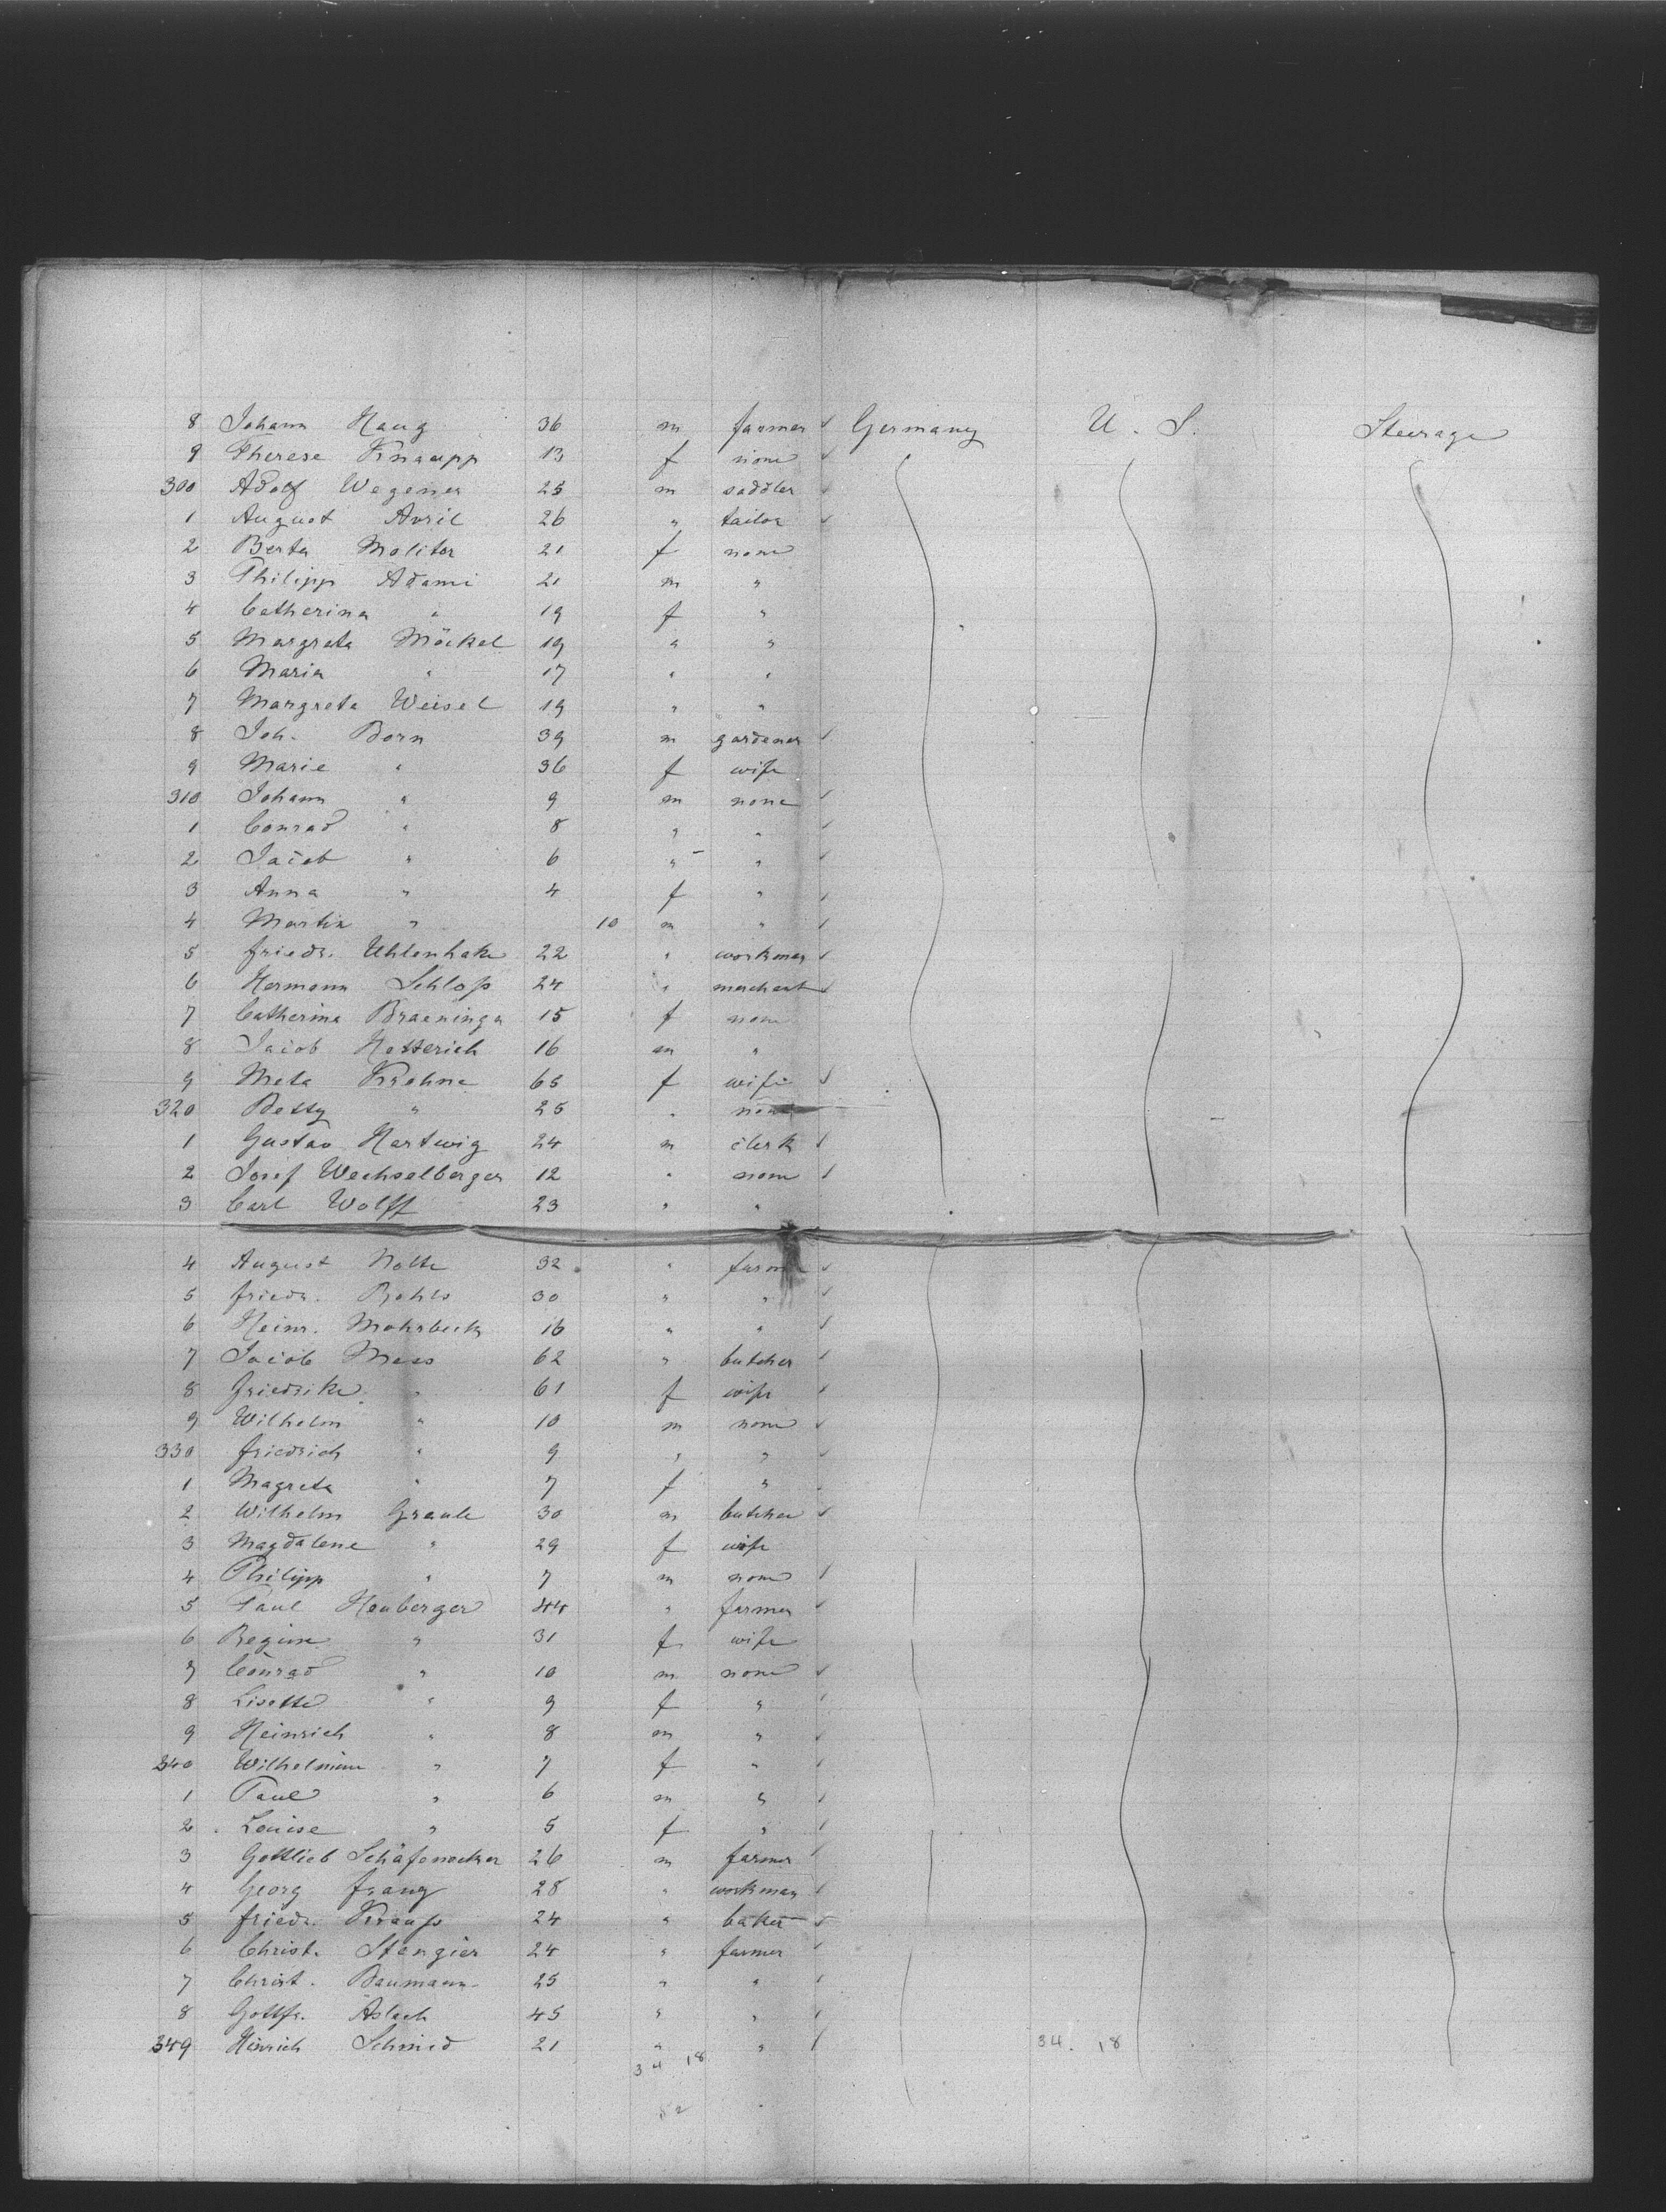 8 Johann Haug 36 m farmer ✓ Germany U. S. Steerage
9 Therese Knaupp 13 f none ✓
300 Adolf Wegener 25 m saddler ✓
1 August Avril 26 " tailor ✓
2 Berta Molitor 21 f none
3 Philipp Adami 21 m "
4 Catherina " 19 f "
5 Margreta Möckel 19 " "
6 Maria " 17 " "
7 Margreta Weisel 19 " "
8 Joh. Born 39 m gardener ✓
9 Marie " 36 f wife
310 Johann " 9 m none ✓
1 Conrad " 8 " " ✓
2 Jacob " 6 " " ✓
3 Anna " 4 f " ✓
4 Martin " 10 m " ✓
5 Friedr. Uhlenhake 22 " workman ✓
6 Hermann Schloß 24 " merchant ✓
7 Catherina Braeninga 15 f none
8 Jacob Hetterich 16 m "
9 Meta Krohne 65 f wife ✓
320 Betty " 25 " none
1 Gustav Hartwig 24 m clerk ✓
2 Josef Wechselberger 12 " none ✓
3 Carl Wolff 23 " "
4 August Nolte 32 " farmer ✓
5 Friedr. Bohls 30 " " ✓
6 Heinr. Mohrbeck 16 " " ✓
7 Jacob Mess 62 " butcher ✓
8 Friedrike " 61 f wife ✓
9 Wilhelm " 10 m none ✓
330 Friedrich " 9 " " ✓
1 Magreta " 7 f "
2 Wilhelm Graule 30 m butcher ✓
3 Magdalene " 29 f wife
4 Philipp " 7 m none ✓
5 Paul Heuberger 44 " farmer ✓
6 Regine " 31 f wife
7 Conrad " 10 m none ✓
8 Lisette " 9 f " ✓
9 Heinrich " 8 m " ✓
340 Wilhelmine " 7 f " ✓
1 Paul " 6 m " ✓
2 Louise " 5 f " ✓
3 Gottlieb 26 m farmer ✓
4 Georg Franz 28 " workman ✓
5 Friedr. Krauß 24 " baker ✓
6 Christ. Stengier 24 " farmer ✓
7 Christ. Baumann 25 " " ✓
8 Gottfr. Aslach 45 " " ✓
349 Hinrich Schmid 21 " " ✓ 34. 18
34 18
52